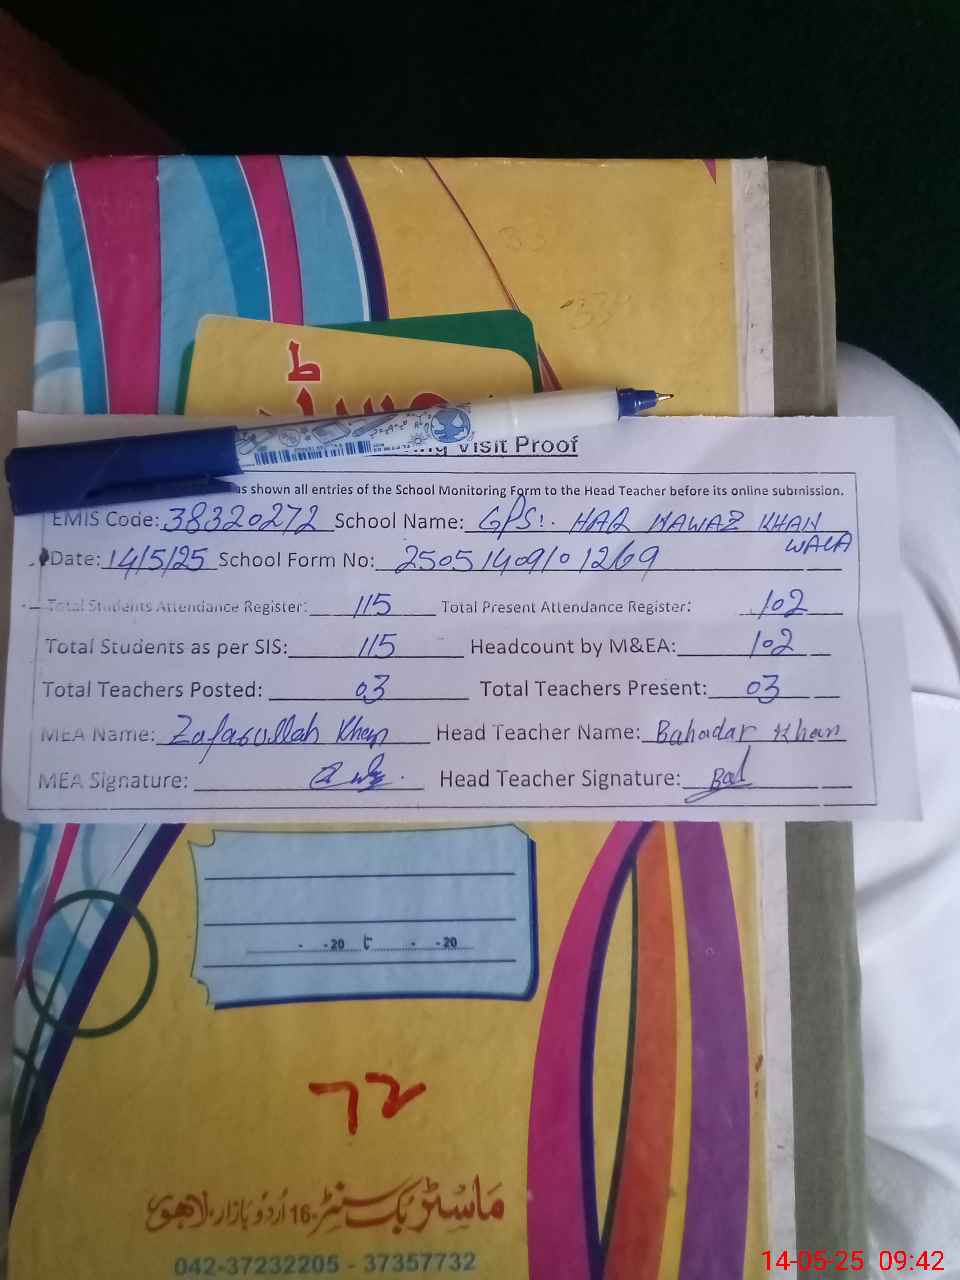 33
33
Visit Proof
as shown all entries of the School Monitoring Form to the Head Teacher before its online submission.
EMIS Code: 38320272 School Name: GPS: HAQ NAWAZ KHAN
WALA
Date: 14/5/25 School Form No: 25051409101269
Total Students Attendance Register: 115 Total Present Attendance Register: 102
Total Students as per SIS: 115 Headcount by M&EA: 102
Total Teachers Posted: 03 Total Teachers Present: 03
MEA Name: Zafarullah Khan Head Teacher Name: Bahadar Khan
MEA Signature: Head Teacher Signature: Bal
- -20 ت - -20
72
ماسٹر بک سنٹر-16 اُردو بازار-لاهور
042-37232205 - 37357732
14-05-25 09:42